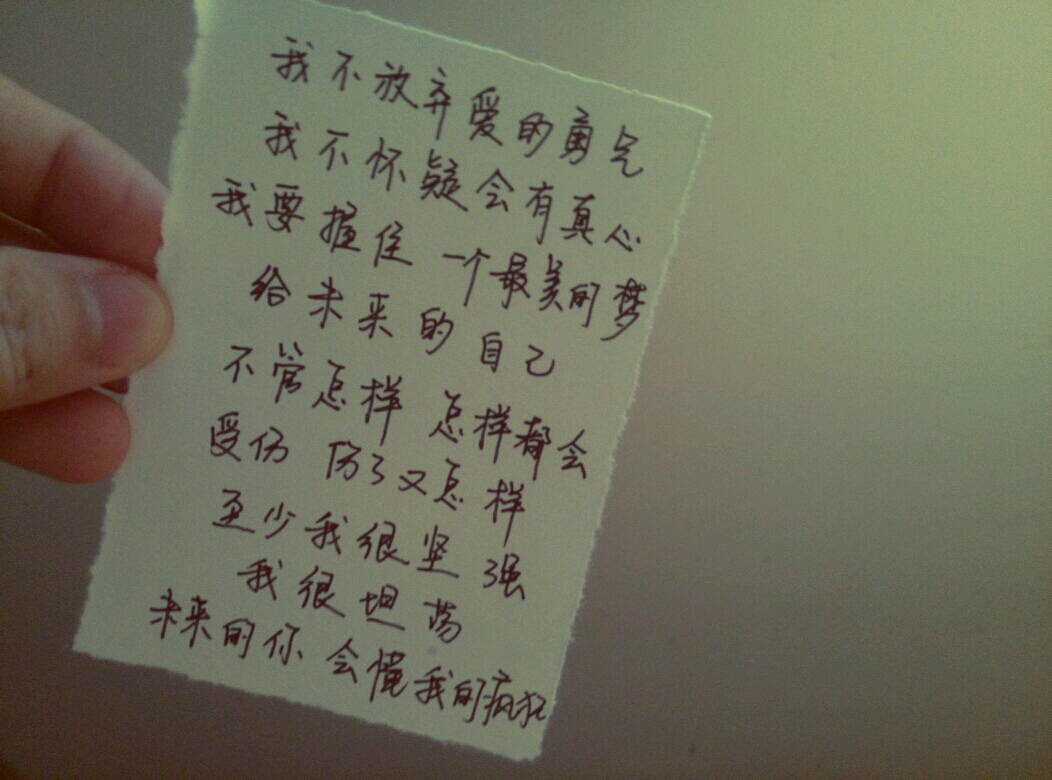 我不放弃爱的勇气
我不怀疑会有真心
我要握住 一个最美的梦
给未来的自己
不管怎样 怎样都会
受伤 伤了又怎样
至少我很坚强
我很坦荡
未来的你 会懂我的疯狂